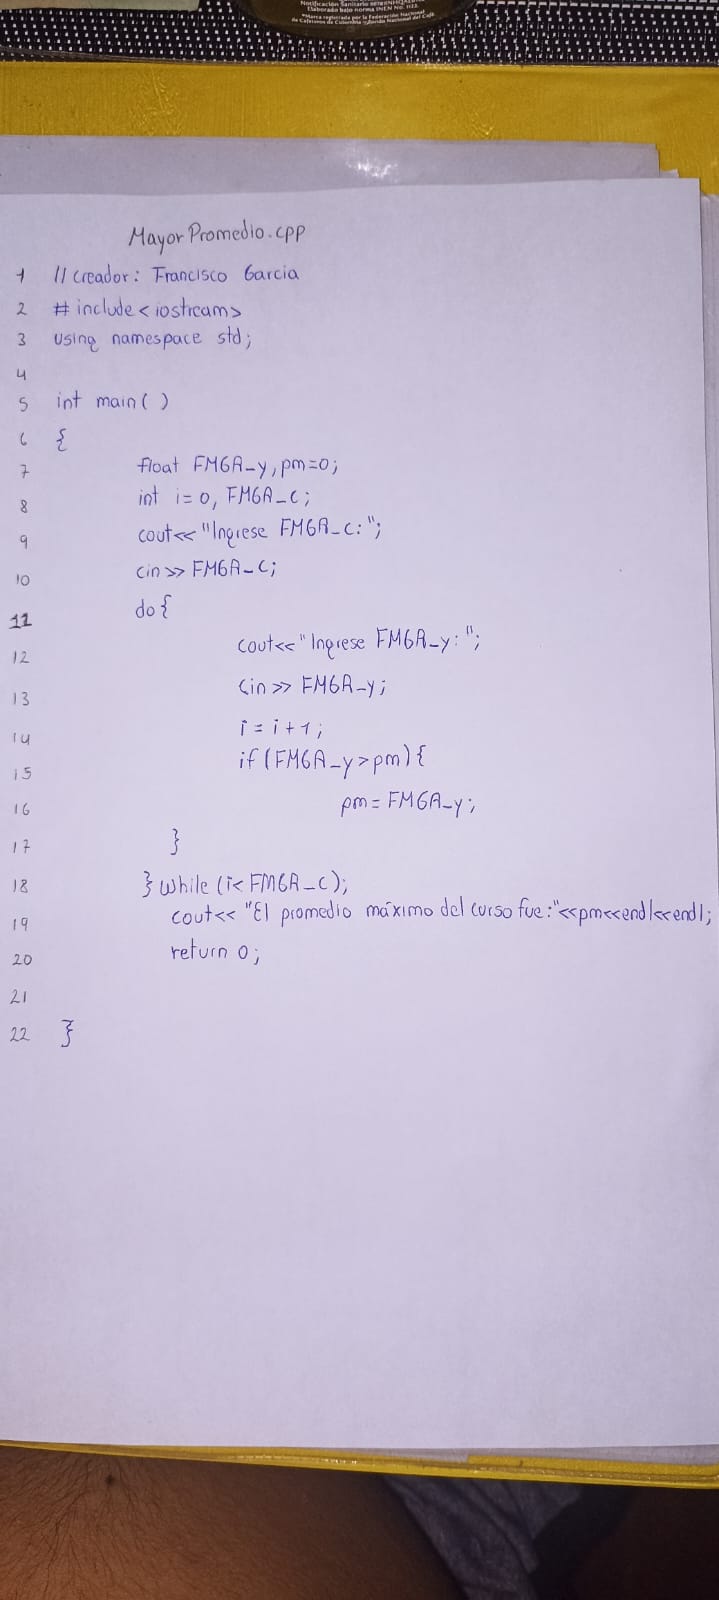 Notificación Sanitaria
Elaborado bajo norma INEN No. 1123.
"Marca registrada por la Federación Nacional
de Cafeteros de Colombia
Mayor Promedio.cpp
1 // Creador: Francisco Garcia
2 # include <iostream>
3 using namespace std;
4
5 int main( )
6 {
7 float FMGA_y, pm=0;
8 int i= 0, FMGA_C;
9 cout<< "Ingrese FMGA_C: ";
10 cin>> FMGA_C;
11 do {
12 cout<< "Ingrese FMGA_y: ";
13 cin>> FMGA_y;
14 i = i + 1;
15 if (FMGA_y>pm) {
16 pm= FMGA_y;
17 }
18 } while (i< FMGA_C);
19 cout<< "El promedio máximo del curso fue:"<<pm<<endl<<endl;
20 return 0;
21
22 }